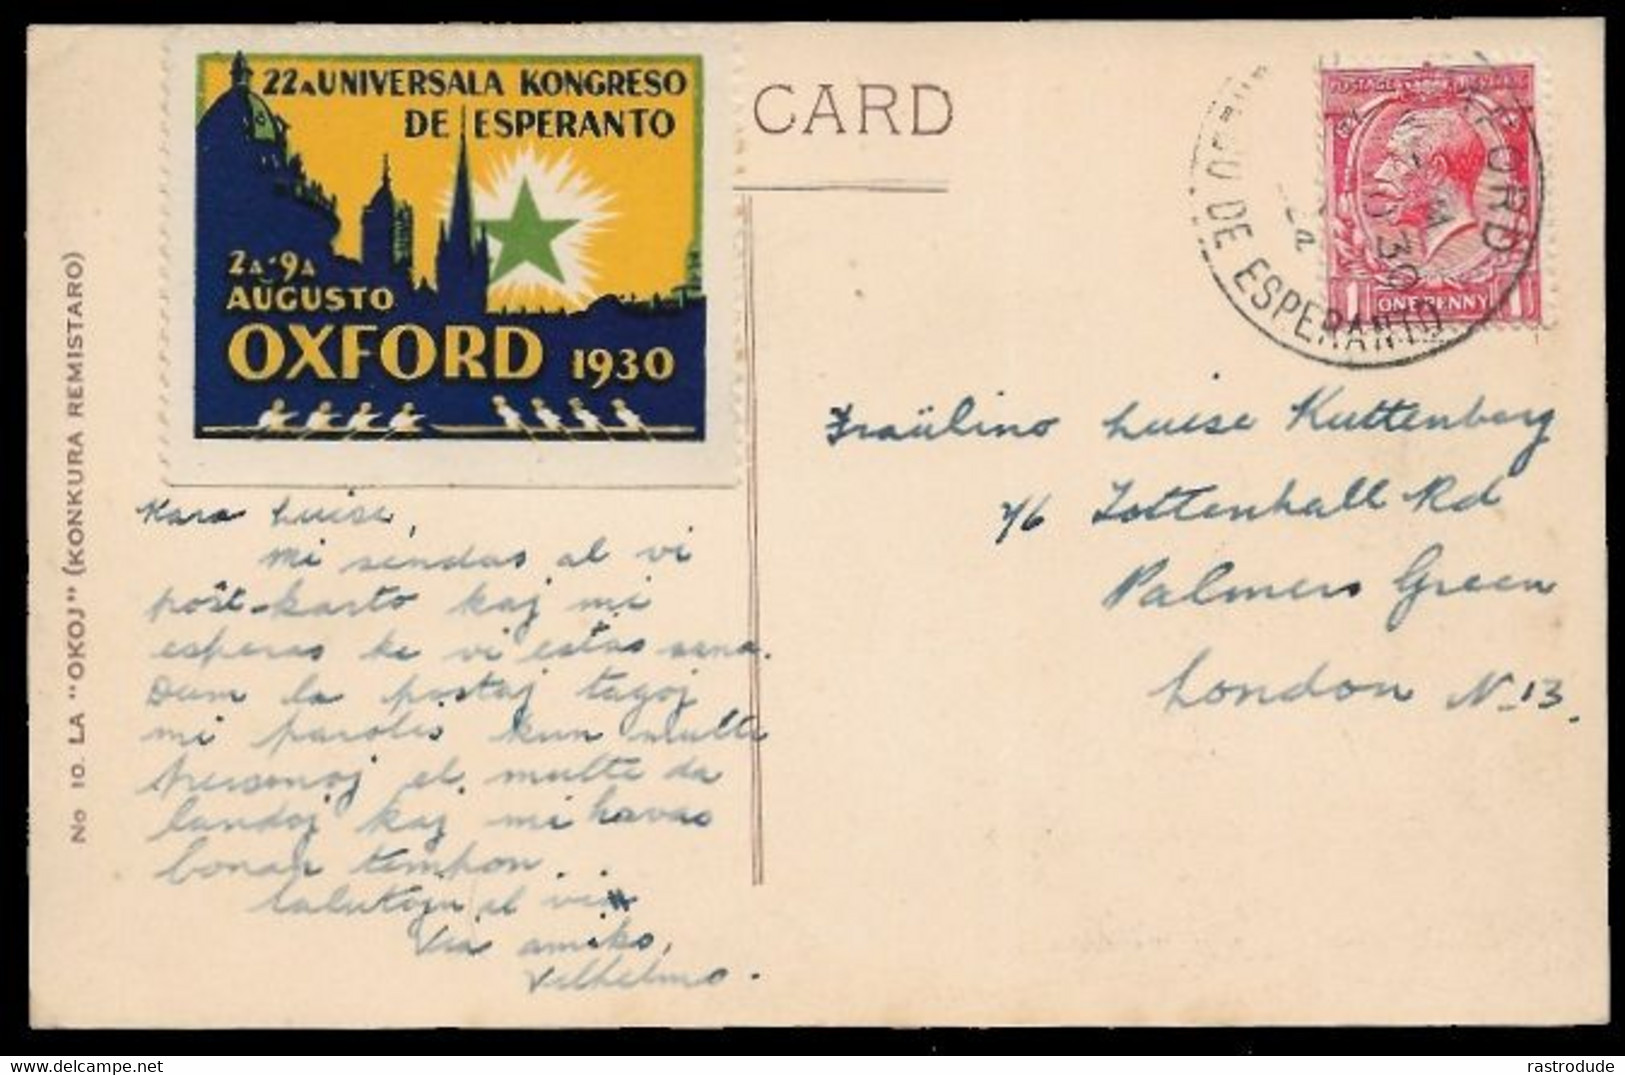 22A UNIVERSALA KONGRESO
DE ESPERANTO
2A-9A
AUGUSTO
OXFORD 1930
CARD
No 10. LA "OKOJ" (KONKURA REMISTARO)
OXFORD
DE ESPERANTO
30
POSTAGE REVENUE
1 ONE PENNY 1
Kara Luise,
Mi sendas al vi
poŝt-karto kaj mi
esperas ke vi estas sana.
Dum la postaj tagoj
mi parolis kun multe
personoj el multe da
landoj kaj mi havas
bonan tempon.
Salutojn al vi
Via amiko,
Vilhelmo.
Fraŭlino Luise Kuttenberg
76 Tottenhall Rd
Palmers Green
London N.13.
rastrodude
delcampe.net